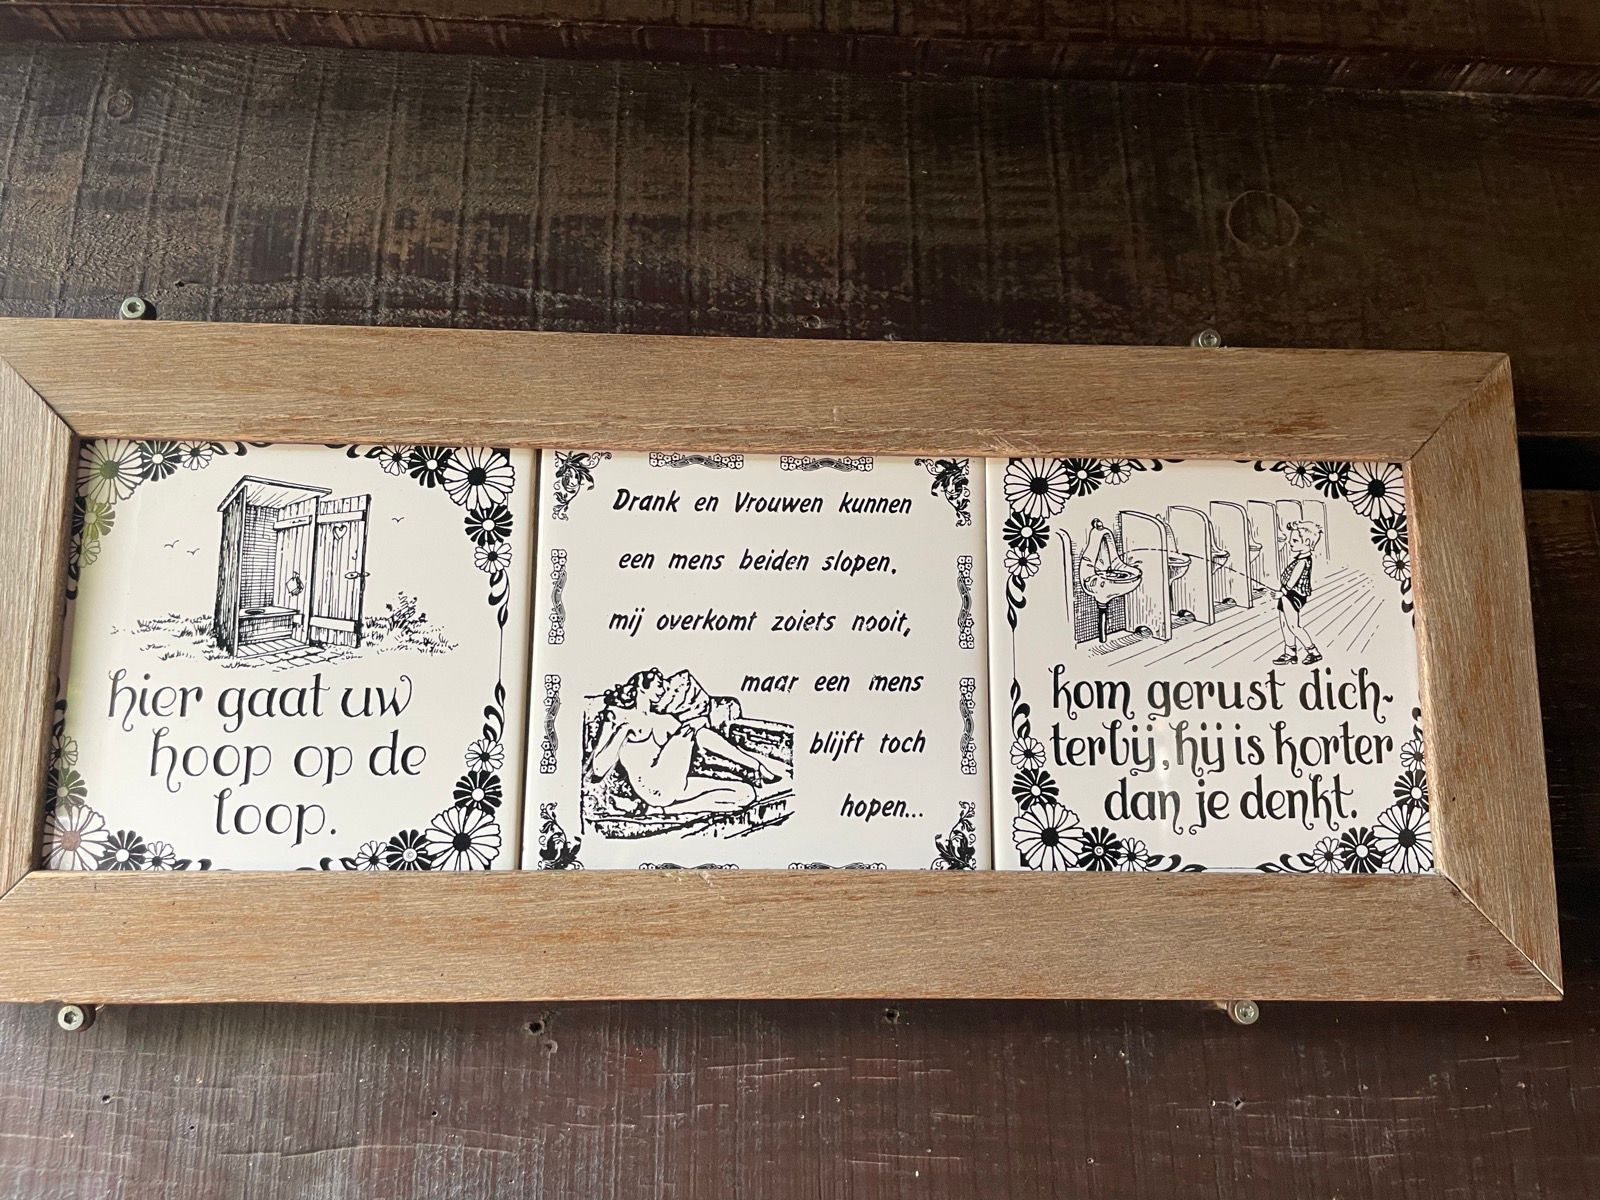 hier gaat uw
hoop op de
loop.
Drank en Vrouwen kunnen
een mens beiden slopen,
mij overkomt zoiets nooit,
maar een mens
blijft toch
hopen...
kom gerust dich-
terbij, hij is korter
dan je denkt.